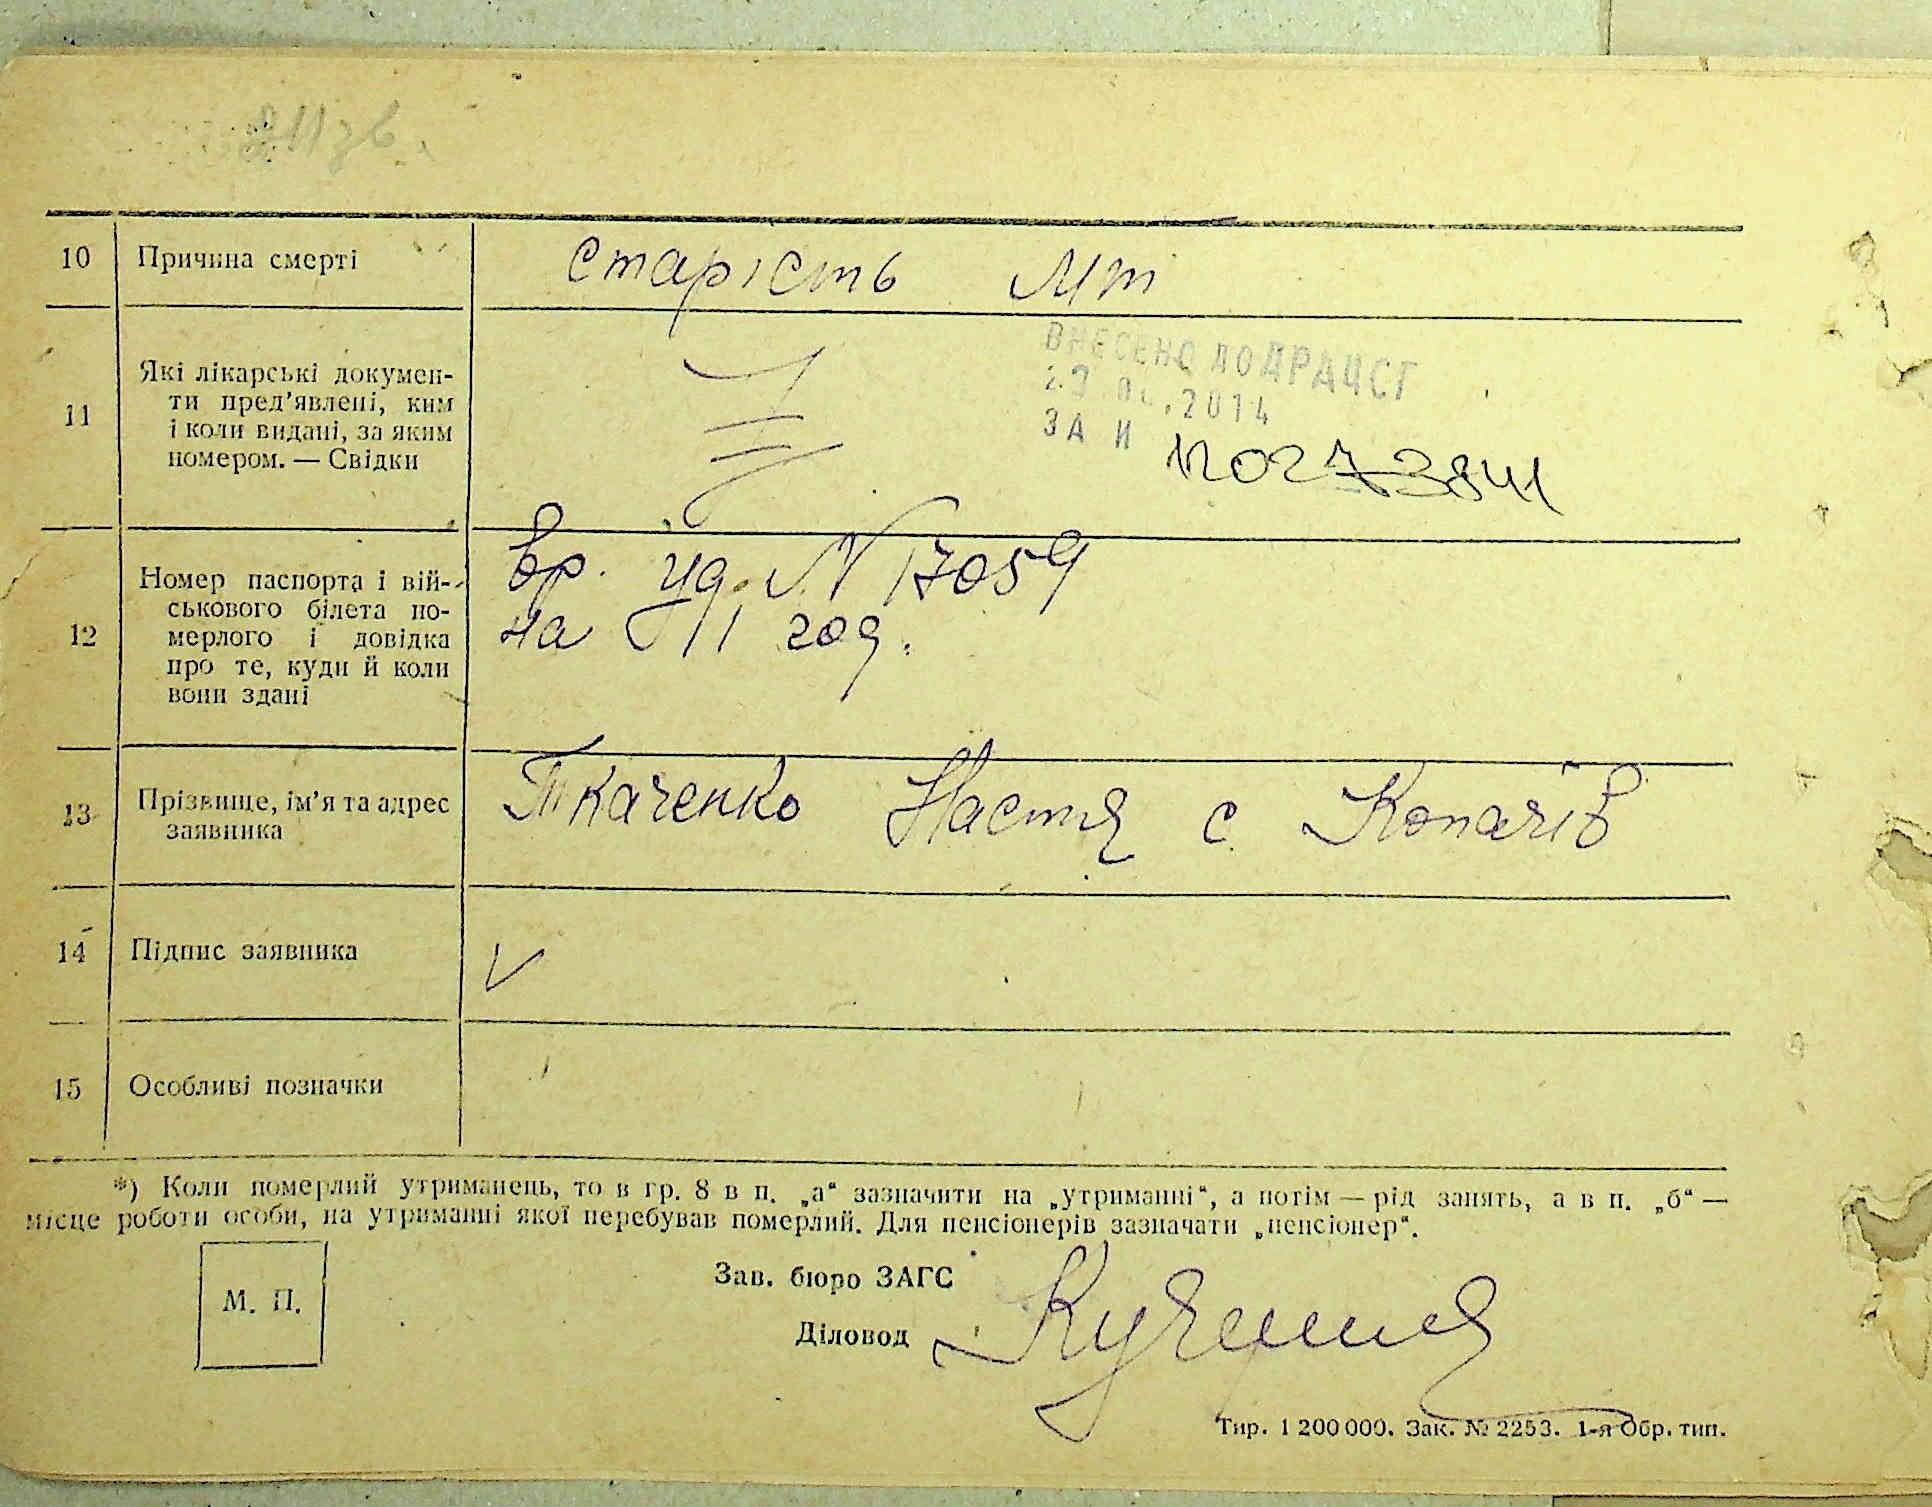 10 Причина смерті старість
ВНЕСЕНО ДО ДРАЦСГ
2014
ЗА N 120273841
11 Які лікарські докумен-
ти пред’явлені, ким
і коли видані, за яким
номером. — Свідки
12 Номер паспорта і вій-
ськового білета по-
мерлого і довідка
про те, куди й коли
вони здані
вр. уд. N 17059
на год.
13 Прізвище, ім’я та адрес
заявника
Ткаченко Настя с. Копачів
14 Підпис заявника V
15 Особливі позначки
*) Коли померлий утриманець, то в гр. 8 в п. „а“ зазначити на „утриманні“, а потім — рід занять, а в п. „б“ —
місце роботи особи, на утриманні якої перебував померлий. Для пенсіонерів зазначати „пенсіонер“.
М. П.
Зав. бюро ЗАГС
Діловод
Тир. 1 200 000. Зак. № 2253. 1-я Обр. тип.